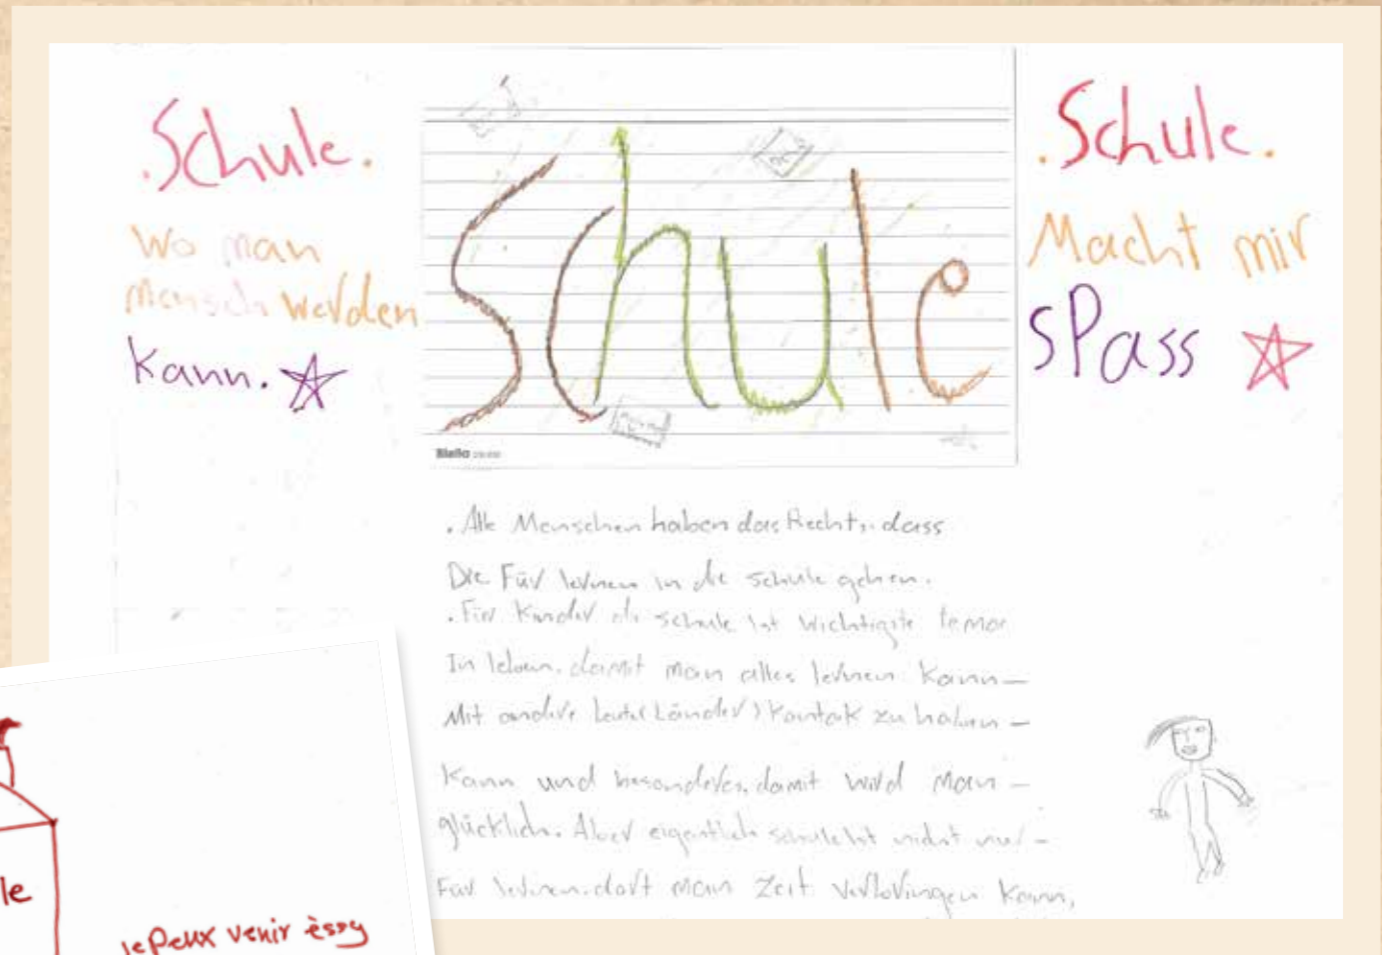 .Schule.
Wo man
Mensch werden
kann.
Schule
.Schule.
Macht mir
sPass
Biella
. Alle Menschen haben das Recht, dass
Die Für lernen in die schule gehen.
. Für Kinder die schule ist wichtigste
In leben. damit man alles lernen kann –
Mit andere Leute (Länder) Kontak zu haben –
Kann und besonderes, damit wird man –
glücklich. Aber eigentlich schule ist nicht nur –
Für lernen. dort man Zeit verbringen kann,
le
jePeux venir èssy